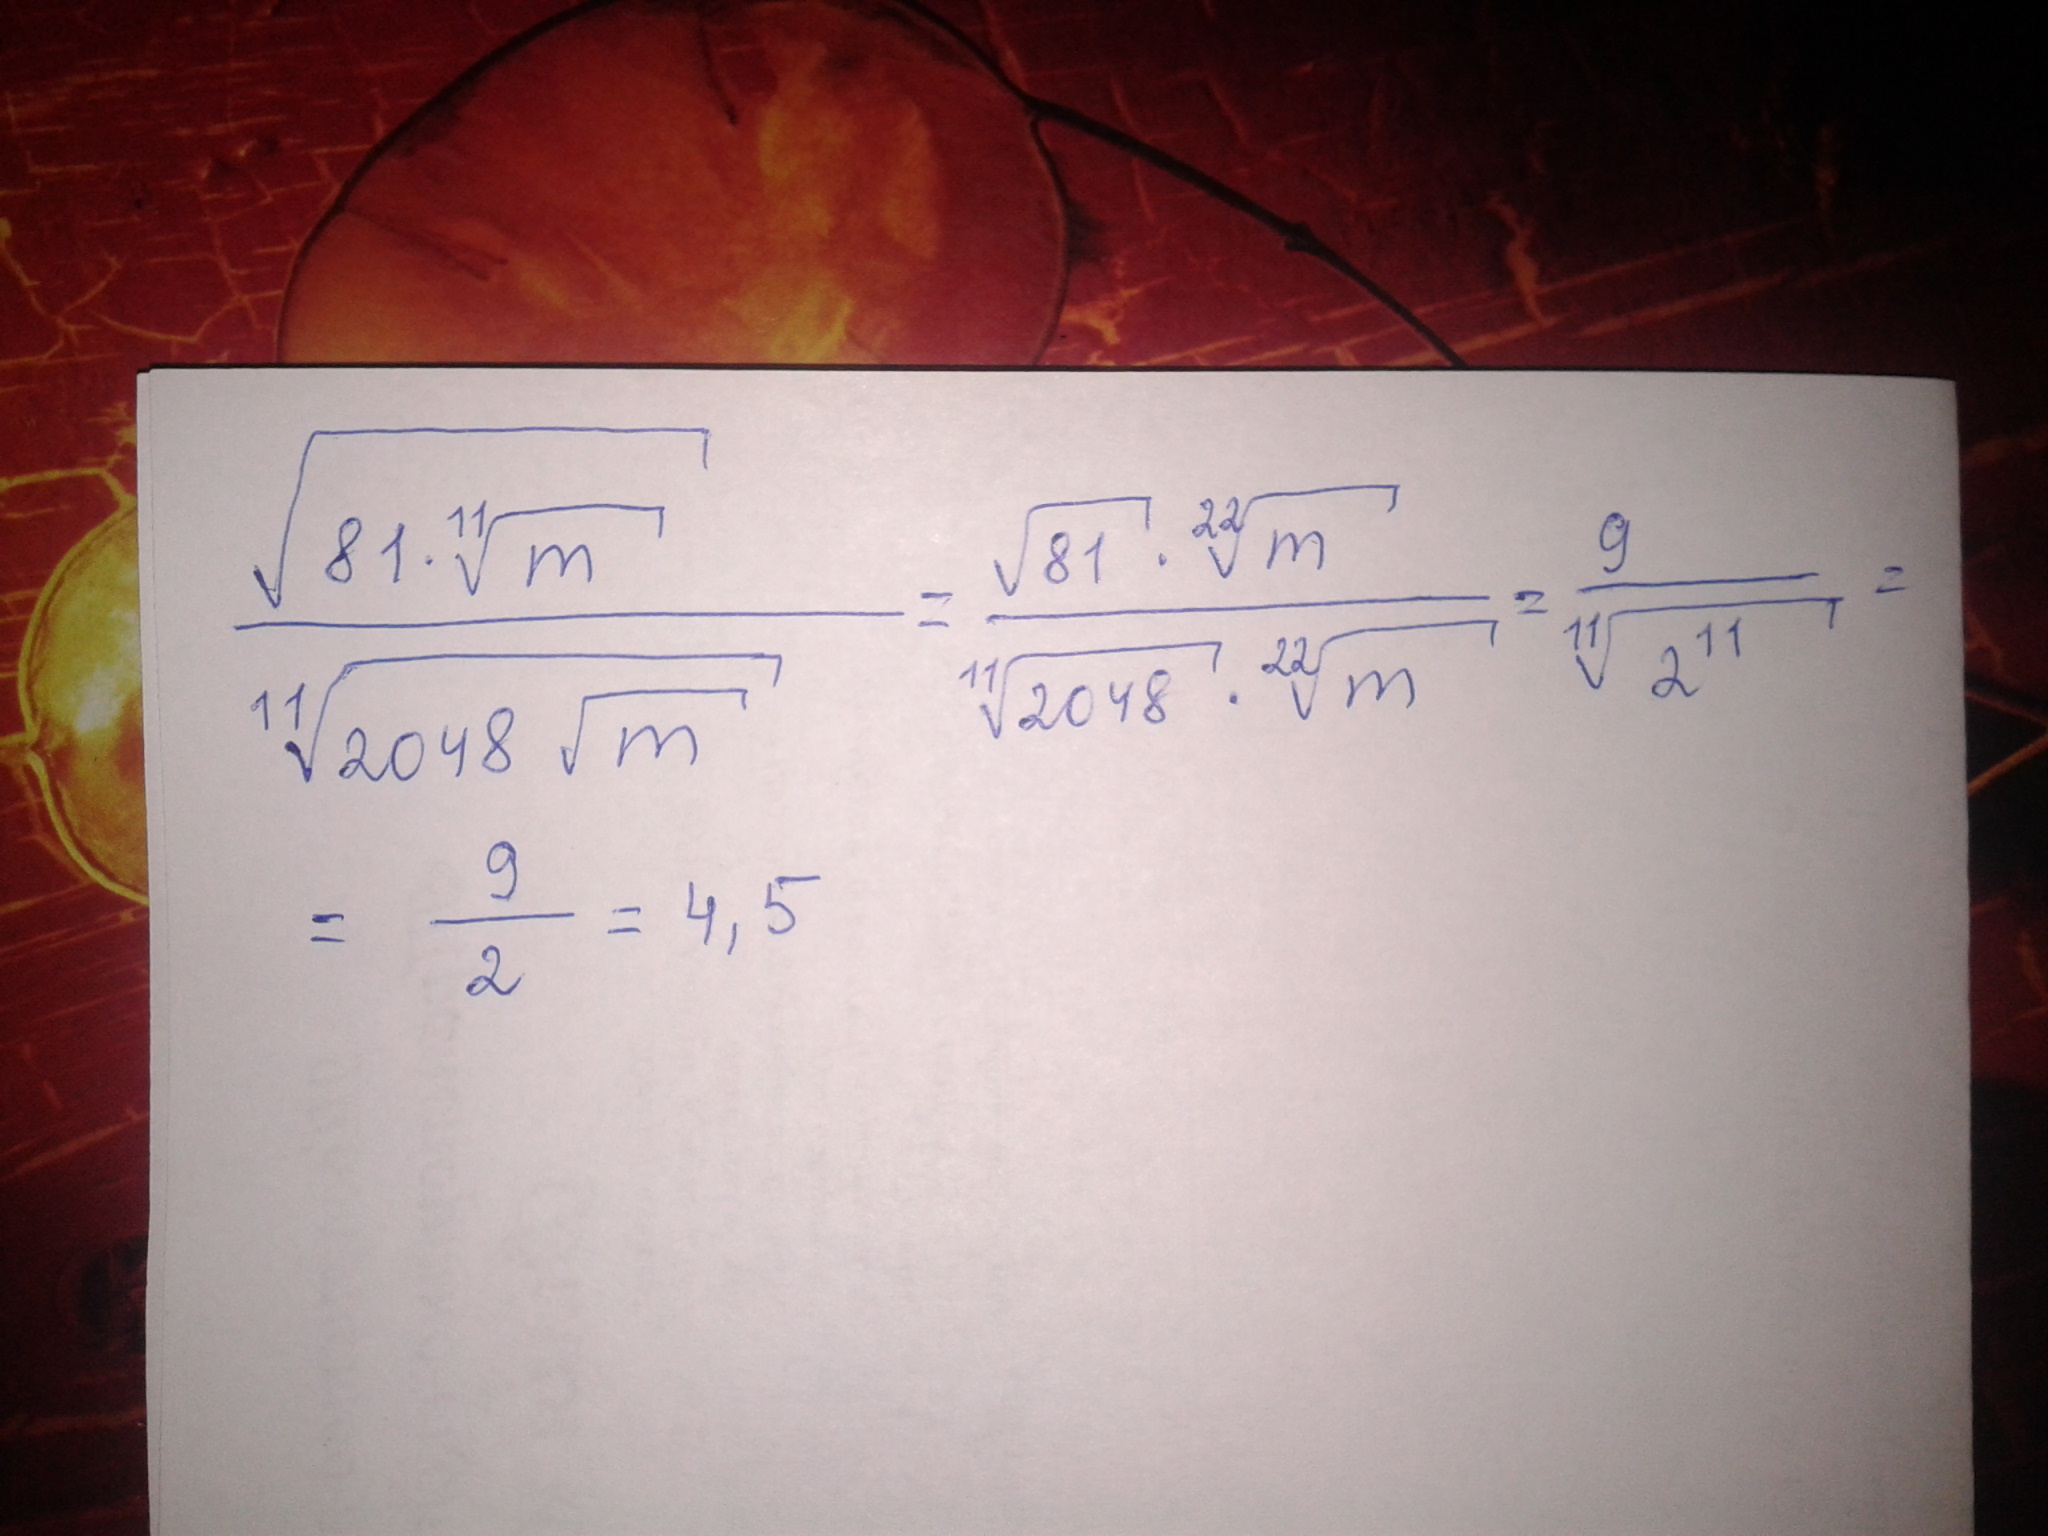 √(81·¹¹√m) / ¹¹√(2048 √m) = √81 · ²²√m / ¹¹√2048 · ²²√m = 9 / ¹¹√2¹¹ =
= 9/2 = 4,5